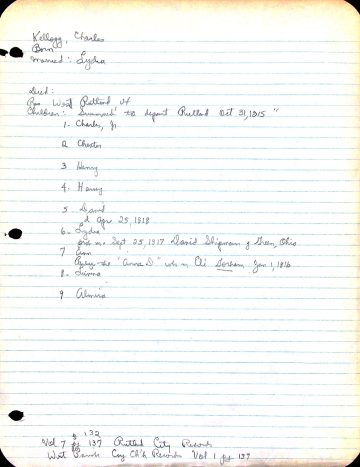 Kellogg, Charles
Born
Married: Lydia
Died:
Res West Rutland, Vt
Children: Summons to depart Rutland Oct 31, 1815 "
1. Charles, Jr
2 Chester
3 Henry
4. Harry
5 David
d Apr 25, 1818
6. Lydia
m. Sept 25, 1817 David Shipman of Green, Ohio
7 Ann
the "Anna D" who m Eli Gorham Jan 1, 1816
8.
9 Almira
p 132
Vol 7 pg 137 Rutland City Records
West Cong Ch'h Records Vol 1 pg 137